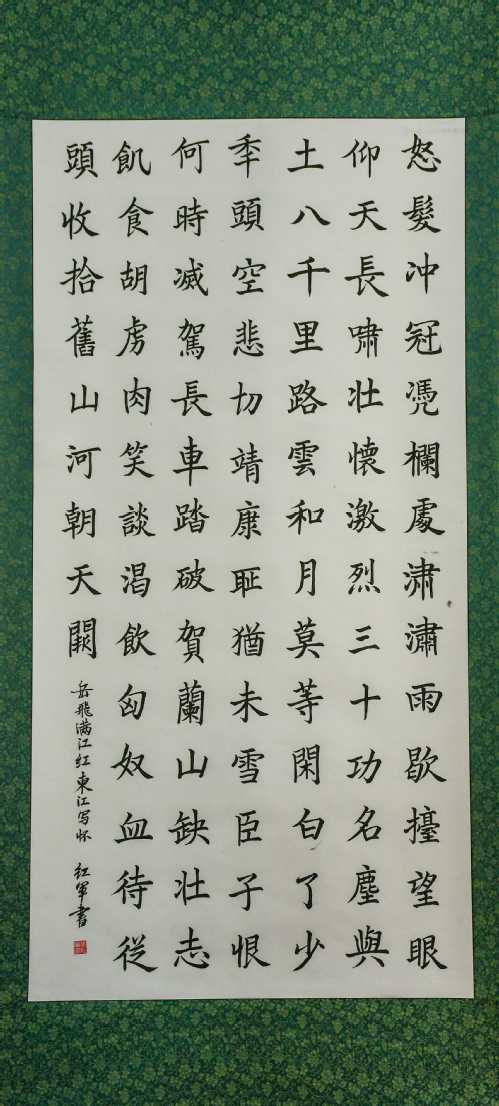 怒髮冲冠憑欄處潚潚雨歇擡望眼
仰天長嘯壮懷激烈三十功名塵與
土八千里路雲和月莫等閑白了少
年頭空悲切靖康耻猶未雪臣子恨
何時滅駕長車踏破賀蘭山缺壮志
飢食胡虏肉笑談渴飲匈奴血待從
頭收拾舊山河朝天闕
岳飛满江红東江写怀 红軍書